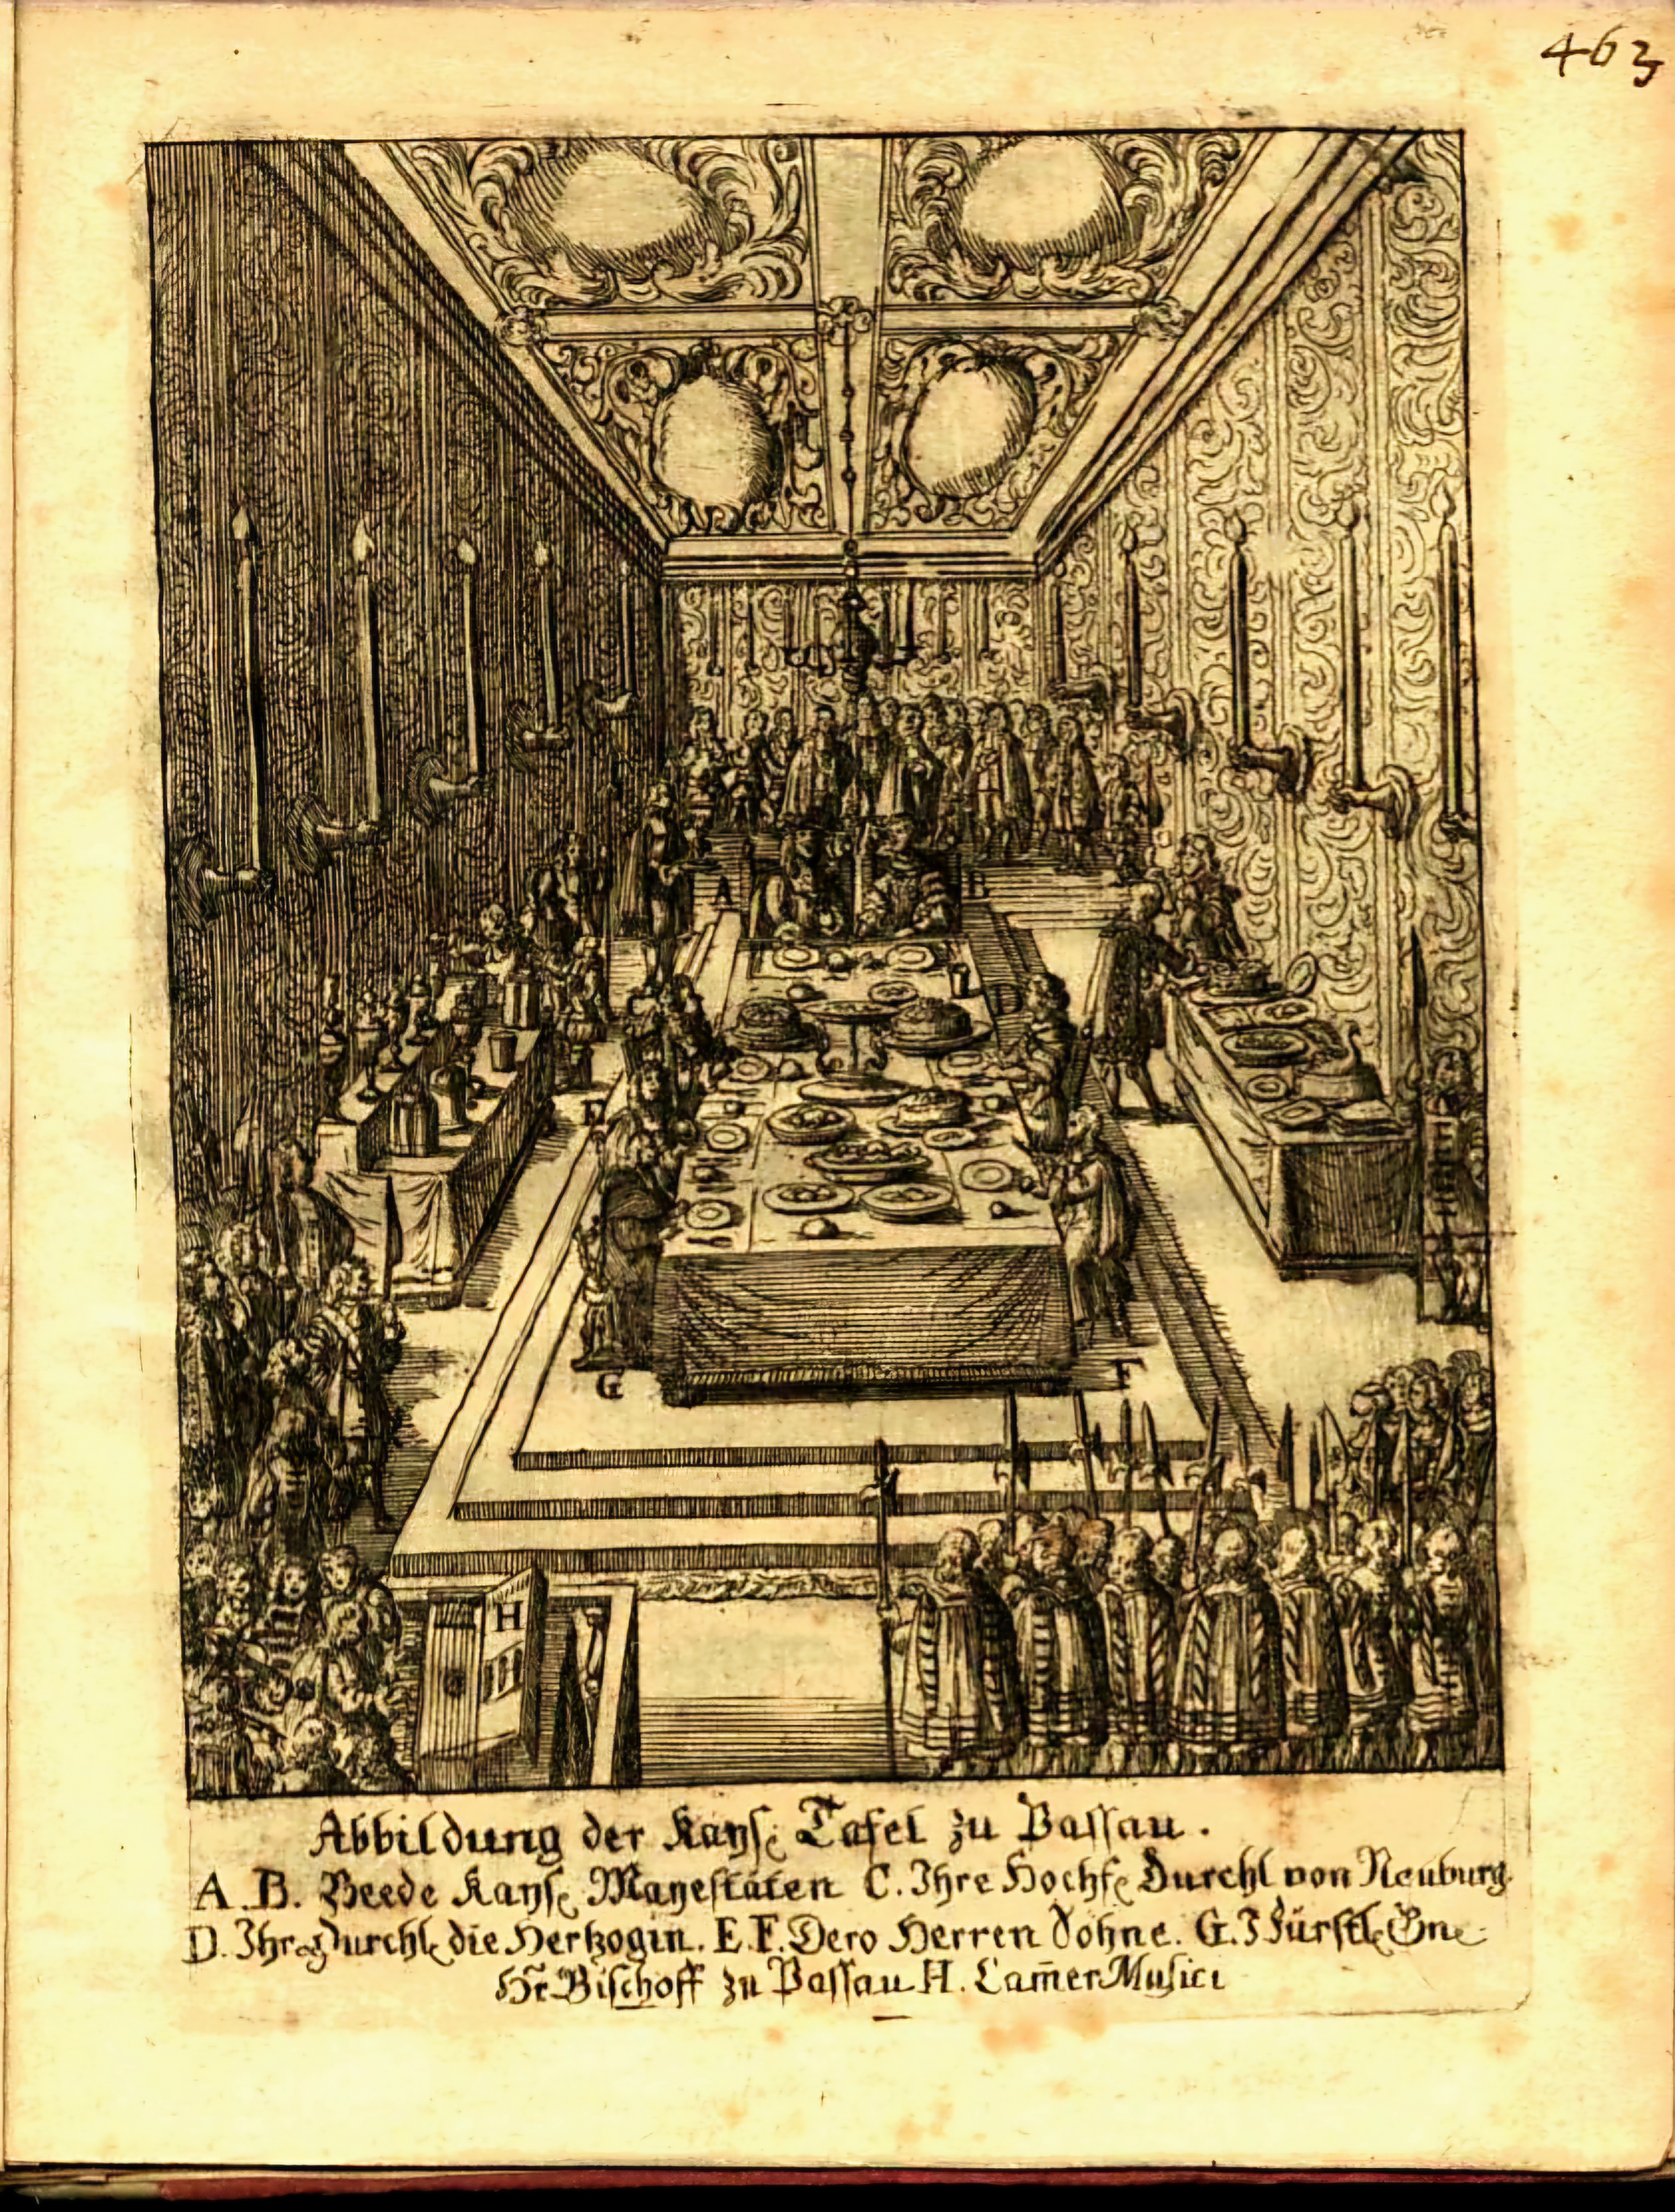 463
A B
D
E
G F
H
Abbildung der Kayſ: Tafel zu Paſſau.
A. B. Beede Kayſ: Mayeſtäten C. Ihre Hochf: Durchl von Neuburg.
D. Ihre Durchl: die Hertzogin. E. F. Dero Herren Söhne. G. I Fürſtl: Gne:
Hr̄ Biſchoff zu Paſſau H. Cam̄er Muſici